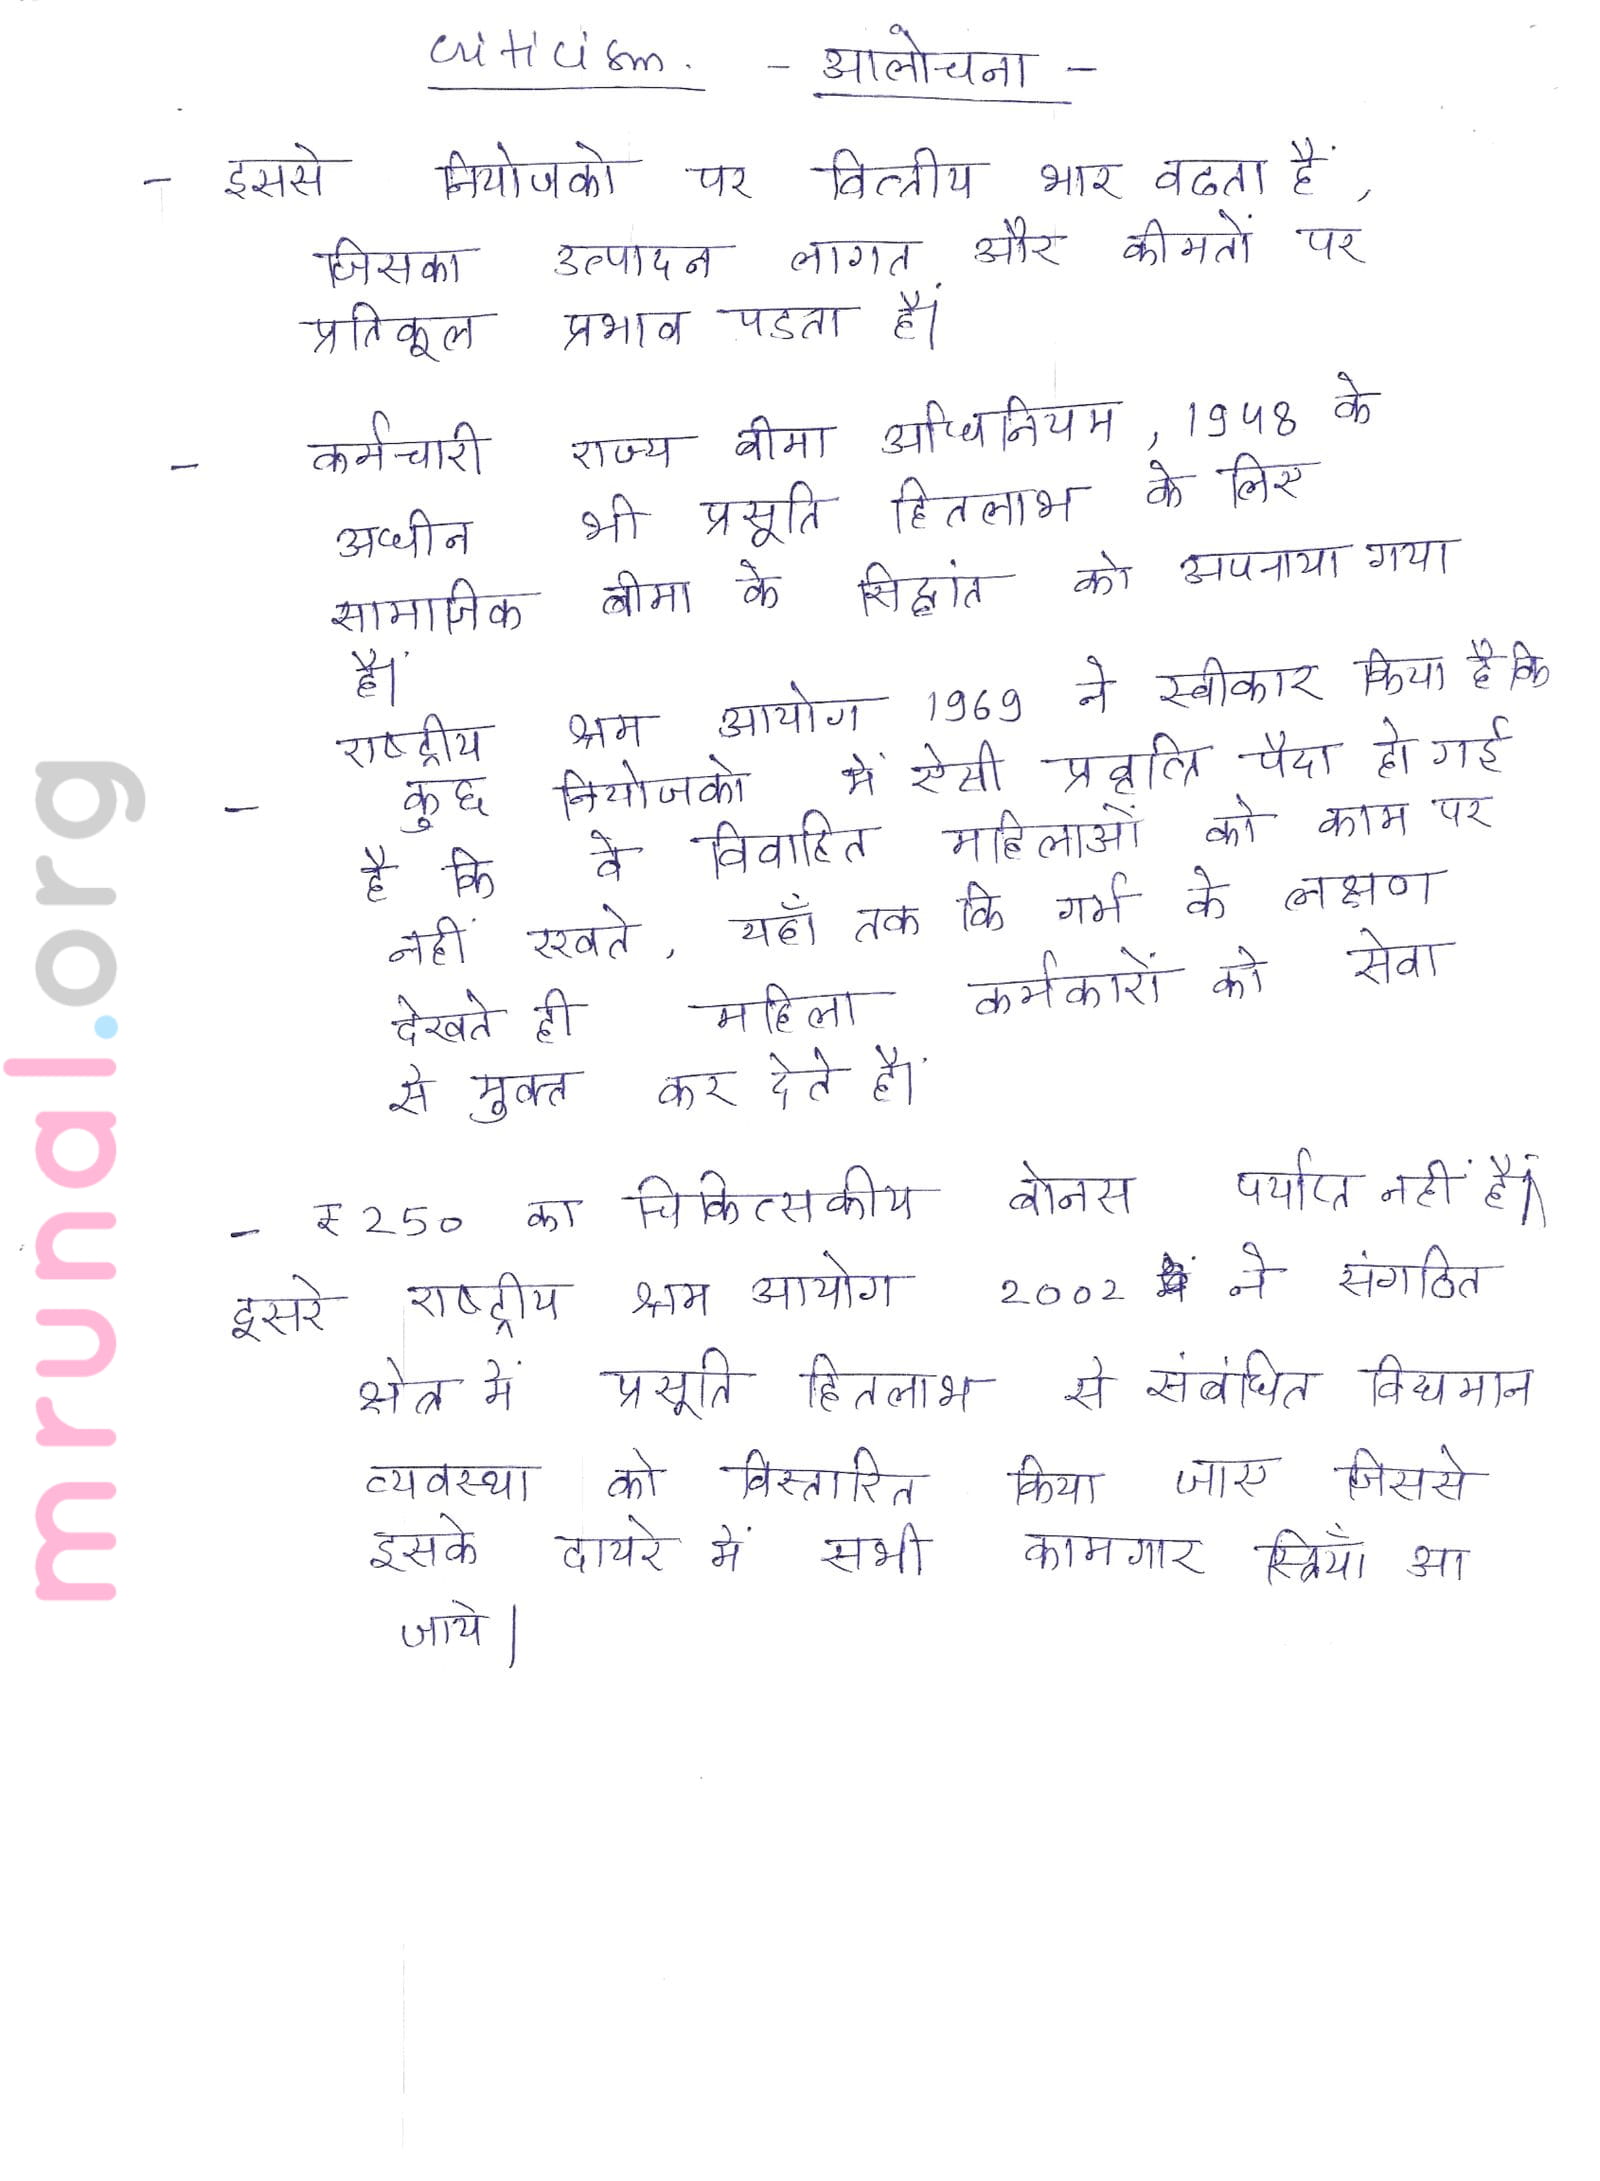 criticism. - आलोचना -
- इससे नियोजको पर वित्तीय भार बढता हैं,
जिसका उत्पादन लागत और कीमतों पर
प्रतिकूल प्रभाव पडता हैं।
- कर्मचारी राज्य बीमा अधिनियम, 1948 के
अधीन भी प्रसूति हितलाभ के लिए
सामाजिक बीमा के सिद्धांत को अपनाया गया
हैं।
राष्ट्रीय श्रम आयोग 1969 ने स्वीकार किया है कि
- कुछ नियोजको में ऐसी प्रवृत्ति पैदा हो गई
है कि वे विवाहित महिलाओं को काम पर
नहीं रखते, यहाँ तक कि गर्भ के लक्षण
देखते ही महिला कर्मकारों को सेवा
से मुक्त कर देते हैं।
- ₹250 का चिकित्सकीय बोनस पर्याप्त नहीं हैं।
दूसरे राष्ट्रीय श्रम आयोग 2002 ने संगठित
क्षेत्र में प्रसूति हितलाभ से संबंधित विद्यमान
व्यवस्था को विस्तारित किया जाए जिससे
इसके दायरे में सभी कामगार स्त्रियाँ आ
जाये।
mrunal.org